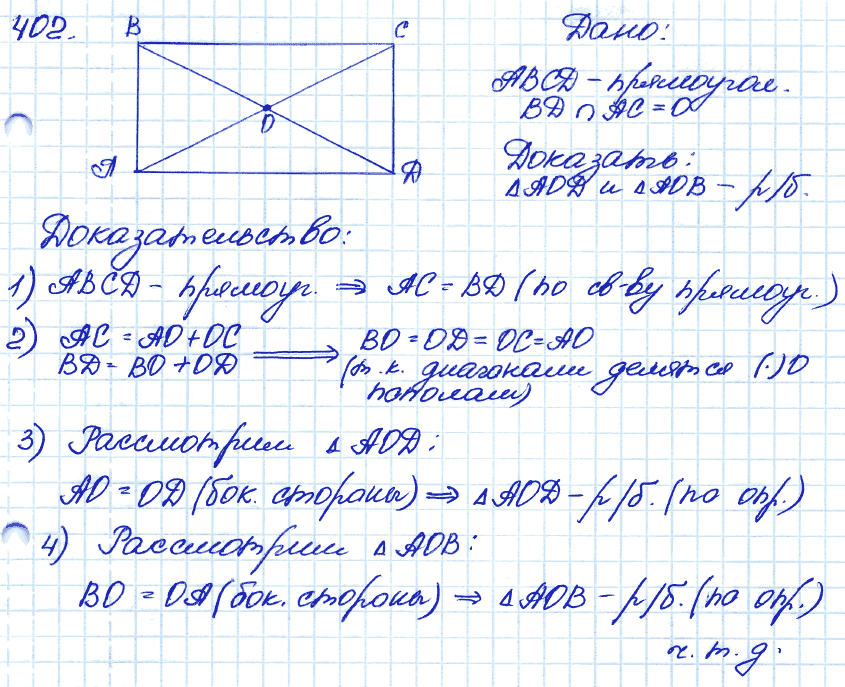 402.
B C
O
A D
Дано:
ABCD – прямоугол.
BD ∩ AC = O
Доказать:
△AOD и △AOB – р/б.
Доказательство:
1) ABCD – прямоуг. ⇒ AC = BD (по св-ву прямоуг.)
2) AC = AO + OC
BD = BO + OD ⇒ BO = OD = OC = AO
(т.к. диагонали делятся (·) O
пополам)
3) Рассмотрим △AOD:
AO = OD (бок. стороны) ⇒ △AOD – р/б. (по опр.)
4) Рассмотрим △AOB:
BO = OA (бок. стороны) ⇒ △AOB – р/б. (по опр.)
ч.т.д.